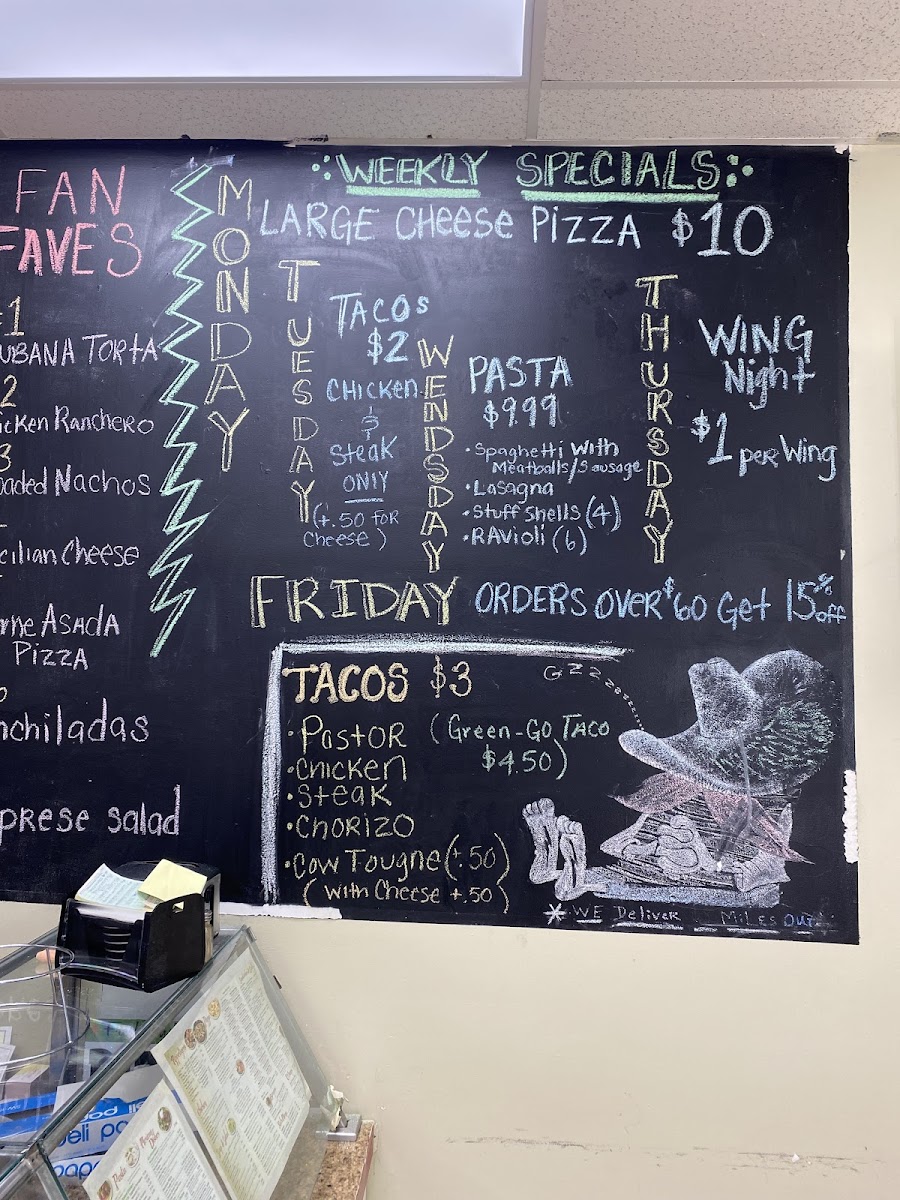 FAN
FAVES
1
UBANA TORTA
2
icken Ranchero
3
oaded Nachos
cilian Cheese
rne Asada
Pizza
nchiladas
prese salad
WEEKLY SPECIALS
MONDAY
LARGE CHeese PiZZA $10
TUESDAY
TACOS
$2
CHICKEN
&
Steak
ONLY
(+.50 FOR
Cheese)
WENDSDAY
PASTA
$9.99
•Spaghetti With
Meatballs/Sausage
•Lasagna
•Stuff Shells (4)
•RAvioli (6)
THURSDAY
WING
Night
$1 per Wing
FRIDAY ORDERS OVER $60 Get 15% off
TACOS $3
•Pastor (Green-Go Taco
$4.50)
•Chicken
•Steak
•Chorizo
•Cow Tougne (+.50)
(With Cheese +.50)
GZZZ
* WE Deliver Miles Out